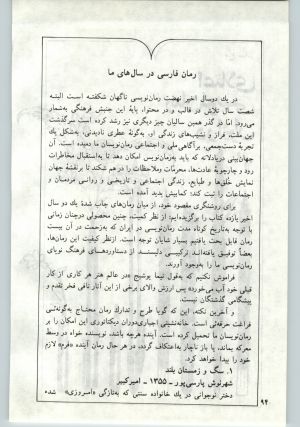 رمان فارسی در سال‌های ما
در یك دوسال اخیر نهضت رمان‌نویسی ناگهان شکفته است البته
شصت سال تلاش در قالب و در محتوا، پایهٔ این جنبش فرهنگی به‌شمار
می‌رود؛ امّا در گذر همین سالیان چیز دیگری نیز رشد کرده است سرگذشت
این ملت، فراز و نشیب‌های زندگی او، به‌گونهٔ عطری نادیدنی، به‌شکل یك
تجربهٔ دست‌جمعی، برآگاهی ملی و اجتماعی رمان‌نویسان ما دمیده است. آن
جهان‌بینی دریادلانه که باید به‌رمان‌نویس امکان دهد تا به‌استقبال مخاطرات
رود و چارچوبهٔ عادت‌ها، محرّمات وملاحظات را در هم شکند تا برنقشهٔ جهان
نمایش خُلق‌ها و طبایع، زندگی اجتماعی و تاریخی و روانی فردمان و
اجتماعات را ثبت کند؛ کمابیش پدید آمده است.
برای روشنگری مقصود خود، از میان رمان‌های چاپ شدهٔ یك دو سال
اخیر یازده کتاب را برگزیده‌ایم: از نظر کمیت، چنین محصولی درچنان زمانی
با توجه به‌تاریخ کوتاه مدت رمان‌نویسی در ایران که به‌زحمت در آن بیست
رمان قابل بحث یافتیم بسیار شایان توجه است. ازنظر کیفیت این رمان‌ها،
بعضاً توفیق یافته‌اند ترکیبی دلپسند از دستاوردهای فرهنگ نوپای
رمان‌نویسی ما را به‌وجود آورند.
فراموش نکنیم که به‌قول نیما یوشیج «در عالم هنر هر کاری از کار
قبلی خود آب می‌خورد» پس ارزش والای برخی از این آثار نافی فخر تقدم و
پیشگامی گذشتگان نیست.
و آخرین نکته، این که گویا طرح و تدارك رمان محتاج به‌گونه‌ئی
فراغت حرفه‌ئی است. خانه‌نشینی اجباری‌دوران دیکتاتوری این امکان را بر
رمان‌نویسان ما تحمیل کرده است. آینده هرچه باشد، نویسنده خواه در وسط
معرکه بماند، یا باز ناچار به‌اعتکاف گردد، در هر حال رمان آینده «فرم» لازم
را پیدا خواهد کرد.
۱. سگ و زمستان بلند
شهرنوش پارسی‌پور ـ ۱۳۵۵ ـ امیرکبیر
دختر نوجوانی در یك خانواده سنتی که به‌تازگی «امروزی» شده
۹۴